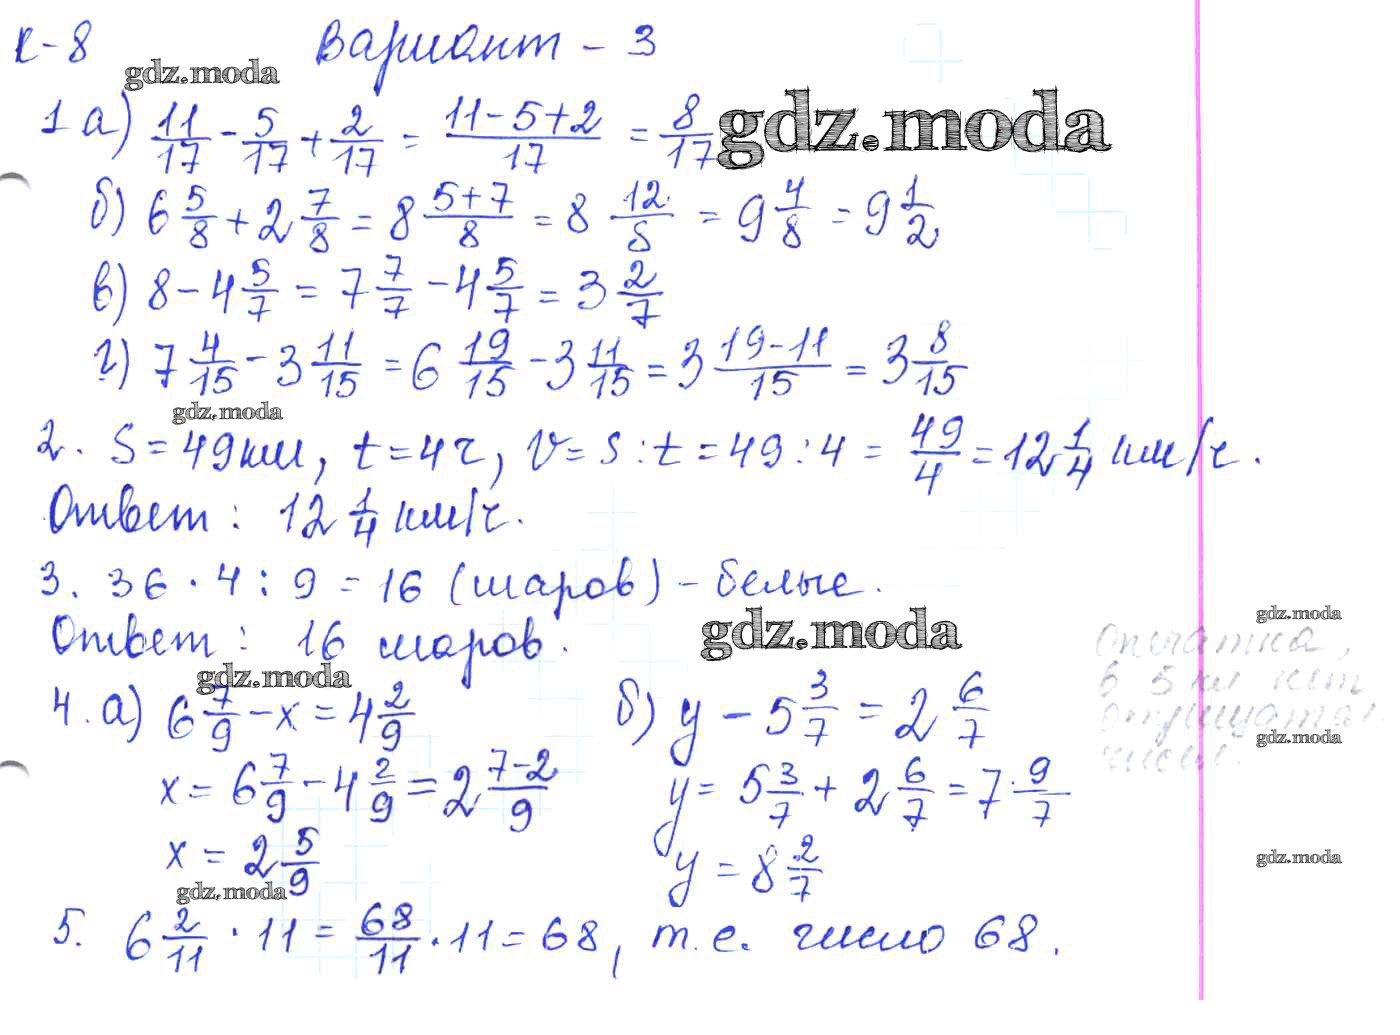 К-8 Вариант - 3
gdz.moda
1 а) 11/17 - 5/17 + 2/17 = (11-5+2)/17 = 8/17 gdz.moda
б) 6 5/8 + 2 7/8 = 8 (5+7)/8 = 8 12/8 = 9 4/8 = 9 1/2
в) 8 - 4 5/7 = 7 7/7 - 4 5/7 = 3 2/7
г) 7 4/15 - 3 11/15 = 6 19/15 - 3 11/15 = 3 (19-11)/15 = 3 8/15
gdz.moda
2. S = 49 км, t = 4 ч, V = S : t = 49 : 4 = 49/4 = 12 1/4 км/ч.
Ответ: 12 1/4 км/ч.
3. 36 · 4 : 9 = 16 (шаров) - белые.
Ответ: 16 шаров.
gdz.moda
gdz.moda
Опечатка,
в 5 кл нет
отрицат.
gdz.moda
чисел.
gdz.moda
4. а) 6 7/9 - x = 4 2/9
x = 6 7/9 - 4 2/9 = 2 (7-2)/9
x = 2 5/9
б) y - 5 3/7 = 2 6/7
y = 5 3/7 + 2 6/7 = 7 9/7
y = 8 2/7
gdz.moda
gdz.moda
5. 6 2/11 · 11 = 68/11 · 11 = 68, т.е. число 68.